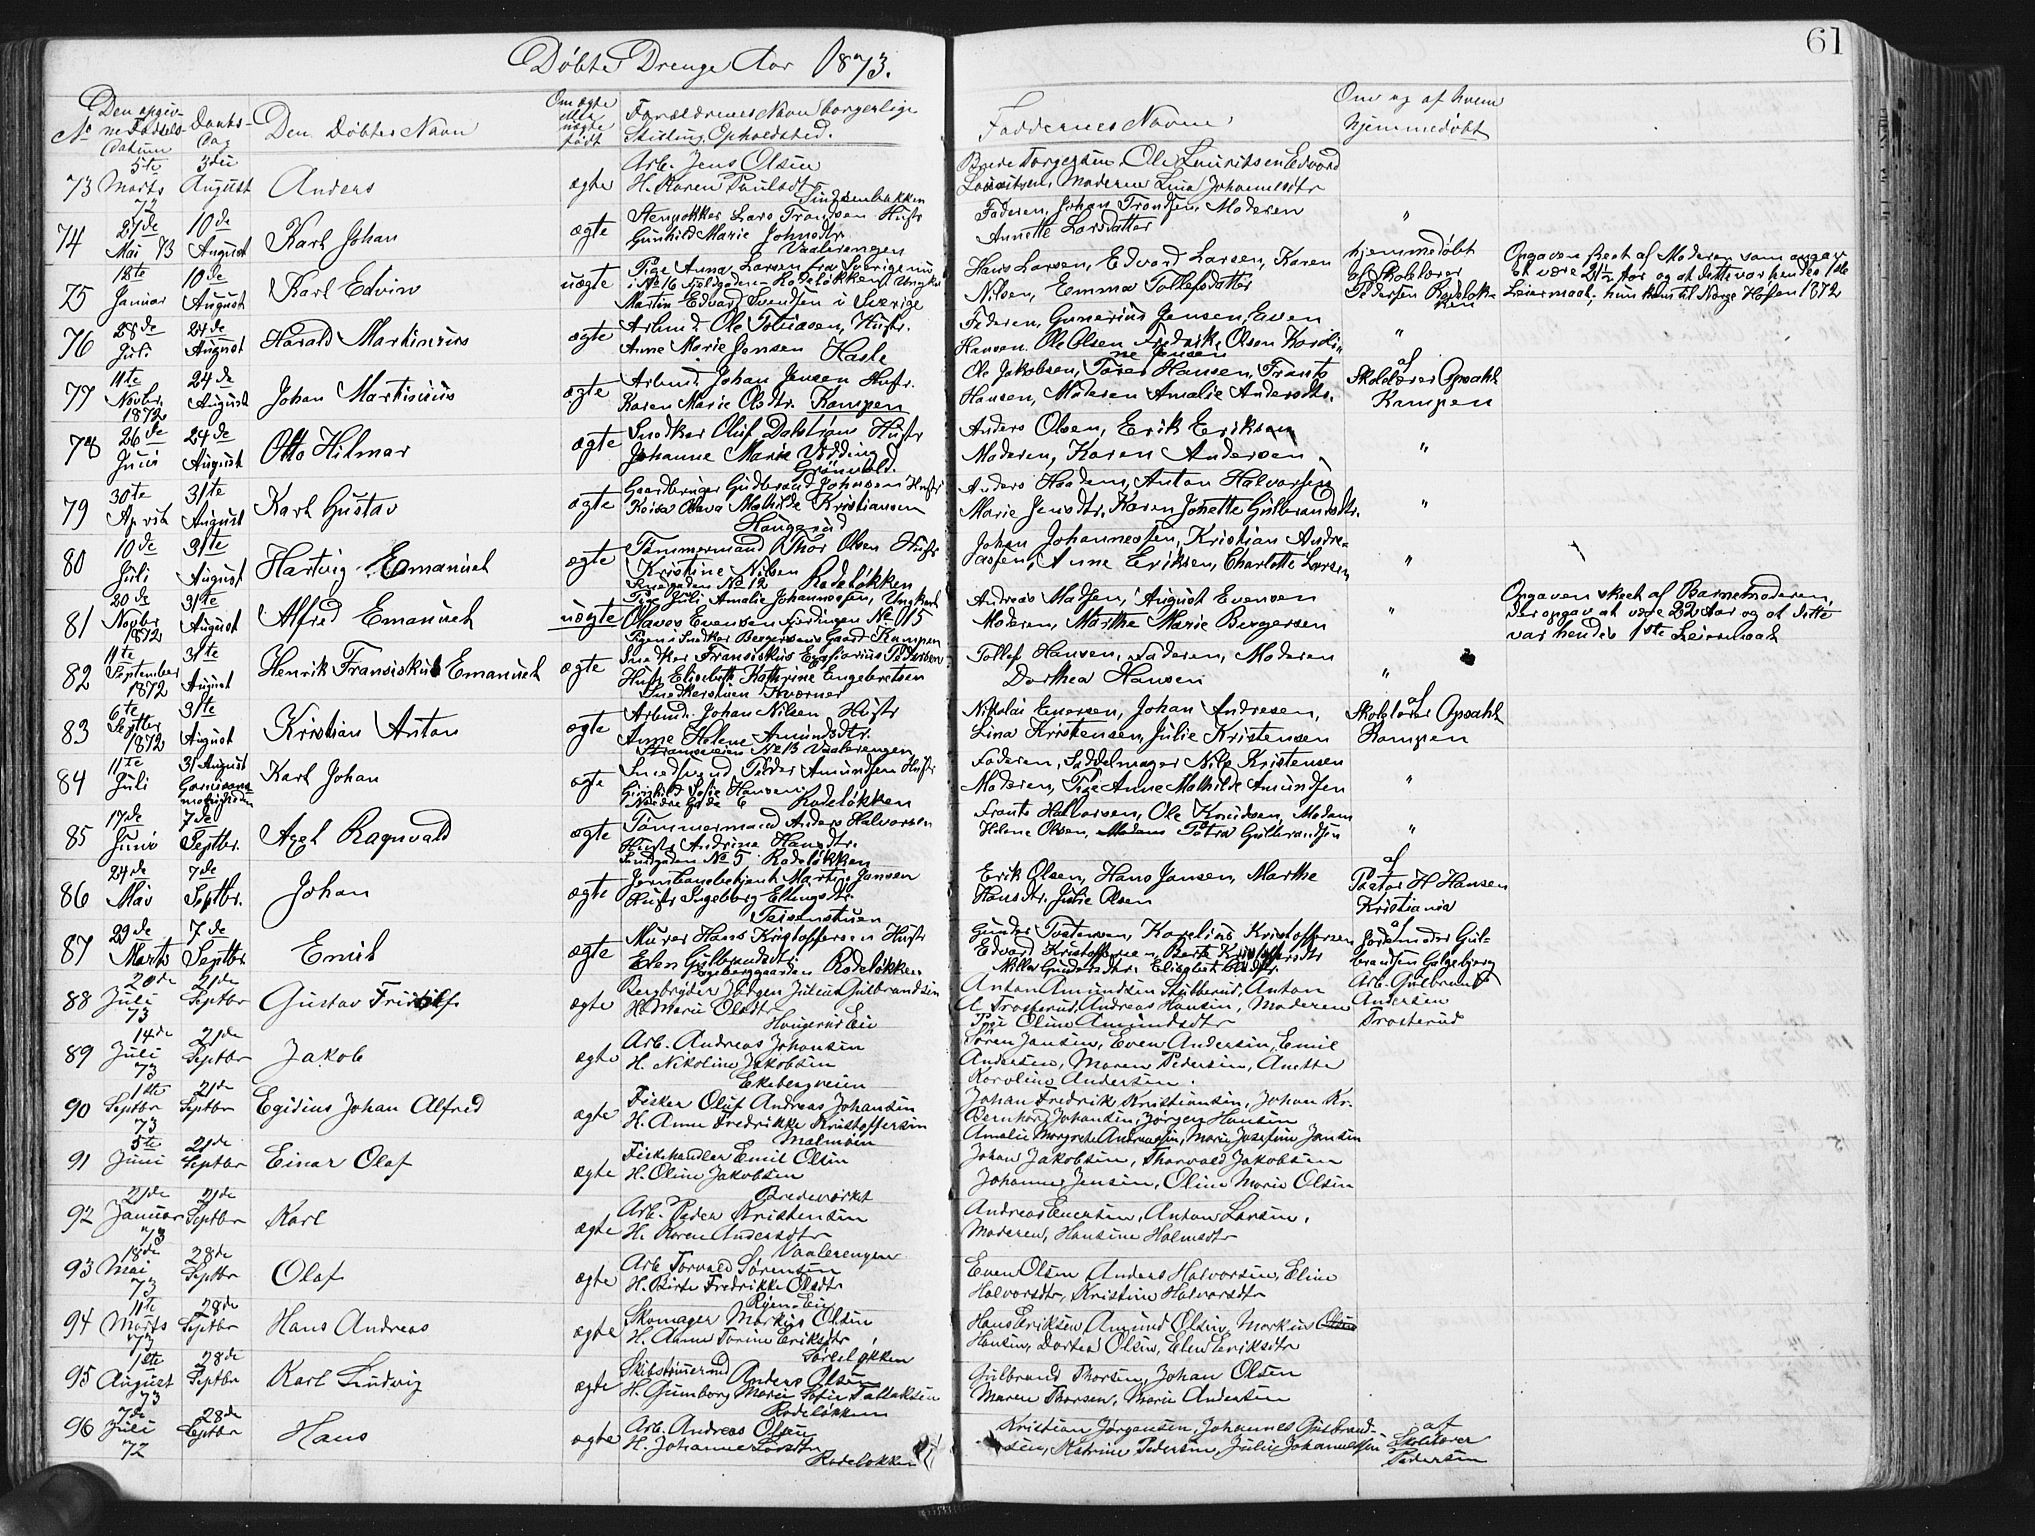 61
Døbte Drenge Aar 1873.
No
Den opgiv-
ne Fødsels-
datum
Daabs-
Dag
Den Døbtes Navn
Om ægte
eller
uægte
født
Forældrenes Navn borgerlige
Stilling, Opholdsted.
Faddernes Navne
Om og af hvem
hjemmedøbt
73 5te Marts 73 3die August Anders ægte
Arb. Jens Olsen
H. Karen Paulsdt
Borde Torgersen, Ole Lauritsen Edvard
Lauritsen, Moderen Lina Johannesdtr
74 27de Mai 73 10de August Karl Johan ægte
Stenpikker Lars Trondsen Hustr
Gunhild Marie Johnsdtr.
Vaalerengen
Faderen, Johan Trondsen, Moderen
Annette Larsdatter
"
75 18te Januar 10de August Karl Edvin uægte
Pige Anna Larsen fra Sverige nu
i No 16 Rodeløkken Ungkl
Martin Edvard Svendsen i Sverige
Hans Larsen, Edvard Larsen, Karen
Nilsen, Emma Tollefsdatter
hjemmedøbt
af Skolelærer
Pedersen Rodeløk-
ken
Opgaven skeet af Moderen som opgav
at være 21½ Aar og at dette var hendes 1ste
Leiermaal, hun kom til Norge Høsten 1872
76 28de Juli 24de August Harald Martinius ægte
Arbmd. Ole Tobiasen, Hustr.
Anne Marie Jensen Hasle
Faderen, Gunerius Jensen, Even
Hansen, Ole Olsen, Fredrik Olsen Karoli-
ne Jensen
"
77 11te Novbr. 1872 24de August Johan Martinius ægte
Arbmd. Johan Jensen Hustr.
Karen Marie Olsdtr. Kampen
Ole Jakobsen, Tores Hansen, Frants
Hansen, Moderen Amalie Andersdtr.
af
Skolelærer Opsahl
Kampen
78 26de Juni 24de August Otto Hilmar ægte
Snedker Oluf Dalstrøm Hustr
Johanne Marie Vedding
Grønvold.
Anders Olsen, Erik Eriksen
Moderen, Karen Andersen
"
79 30te April 31te August Karl Gustav ægte
Gaardbruger Gudbrand Johnsen Hustr
Mathilde Kristiansen
Haugerud
Anders Haaden, Anton Halvorsen
Marie Jensdtr. Karen Jonette Gulbrandsdtr.
"
80 10de Juli 31te August Hartvig Emanuel ægte
Tømmermand Thor Olsen Hustr
Kristine Nilsen
No 12 Rodeløkken
Johan Johannesen, Kristian Andre-
assen, Anne Eriksen, Charlotte Larsen
"
81 20de Novbr 1872 31te August Alfred Emanuel uægte
Pige Juli Amalie Johannesen, Ungkarl
Olavus Evensen No 15
Pigen i Snedker Bergersens Gaard Kampen
Andreas Madsen, August Evensen
Moderen, Marthe Marie Bergersen
"
Opgaven skeet af Barnemoderen,
der opgav at være 22 Aar og at dette
var hendes 1ste Leiermaal
82 11te September 1872 31te August Henrik Fransiskus Emanuel ægte
Snedker Fransiskus Pedersen
Hustr. Elisabeth Kathrine Engebretsen
Snedkerstuen Kværner
Tollef Hansen, Faderen, Moderen
Dorthea Hansen
"
83 6te Septbr 1872 31te August Kristian Anton ægte
Arbmd. Johan Nilsen Hustr
Anne Helene Amundsdtr.
Strømsveien No 13 Vaalerengen
Nikolai Enersen, Johan Andresen,
Lina Kristensen, Julie Kristensen
af
Skolelærer Opsahl
Kampen
84 11te Juli 31 August Karl Johan ægte
Smedsvend Peder Amundsen Hustr
Gunhild Sofie Hansen
Nedre Gade 6 Rodeløkken
Faderen, Saddelmager Nils Kristensen
Moderen, Pige Anne Mathilde Amundsen
"
85 17de Juni 7de Septbr. Axel Ragnvald ægte
Tømmermand Anders Halvorsen
Hustr Andrine Hansdtr.
No 5 Rodeløkken
Frants Halvorsen, Ole Knudsen, Madam
Helene Olsen, Petra Gulbrandsen
"
86 24de Mai 7de Septbr. Johan ægte
Jernbanebetjent Martin Jansen
Hustr Ingeborg Ellingsdtr.
Teisenstuen
Erik Olsen, Hans Jansen, Marthe
Hansdtr. Julie Olsen
af
Pastor H Hansen
Kristiania
87 29de Marts 7de Septbr Emil ægte
Murer Hans Kristoffersen Hustr
Elen Gulbrandsdtr.
Rodeløkken
Gunder Tostensen, Karelius Kristoffersen
Edvard Kristoffersen, Berte Kristoffersdtr
Gundersdtr. Elisabet Olsdtr.
af
Jordmoder Gul-
brandsen Galgeberg
88 20de Juli 73 21de Septbr Gustav Fridtjof ægte
Bergbryder Jørgen Julius Gulbrandsen
H. Marie Olsdtr
Haugerud Eie
Anton Amundsen Skullerud, Anton
A Trosterud, Andreas Hansen, Moderen
Pige Oline Amundsdtr
Arb. Gulbrand
Andersen
Trosterud
89 14de Juli 73 21de Septbr Jakob ægte
Arb. Andreas Johansen
H. Nikoline Jakobsen
Ekebergveien
Søren Jansen, Even Andersen, Emil
Andersen, Maren Pedersen, Anette
Karoline Andersen.
90 1ste Septbr 73 21de Septbr Egidius Johan Alfred ægte
Fisker Oluf Andreas Johansen
H. Anne Fredrikke Kristoffersen
Malmøen
Johan Fredrik Kristiansen, Johan Kr.
Bernhard Johansen, Jørgen Hansen
Amalie Margrete Andreassen, Marie Josefine Jansen
91 5te Juni 21de Septbr Einar Olaf ægte
Fiskehandler Emil Olsen
H. Oline Jakobsen
Johan Jakobsen, Thorvald Jakobsen
Johanne Jensen, Oline Marie Olsen
92 21de Januar 73 21de Septbr Karl ægte
Arb. Peder Kristensen
H. Karen Andersdtr
Vaalerengen
Andreas Enersen, Anton Larsen,
Moderen, Hansine Holmsdtr
93 18de Mai 73 28de Septbr Olaf ægte
Arb Torvald Sørensen
H. Birte Fredrikke Olsdtr
Ryen-Eie
Even Olsen Anders Halvorsen, Eline
Halvorsdtr, Kristine Halvorsdtr
94 11te Marts 73 28de Septbr Hans Andreas ægte
Skomager Markus Olsen
H. Anne Torine Eriksdtr
Hans Eriksen, Amund Olsen, Markus Olsen
Hansen, Dortea Olsen, Elen Eriksdtr
95 1ste August 73 28de Septbr Karl Ludvig ægte
Skibstømrermd Anders Olsen
H. Gunborg Marie Sofie Tallaksen
Rodeløkken
Gulbrand Thorsen, Johan Olsen
Maren Thorsen, Marie Andersen
96 7de Juli 72 28de Septbr Hans ægte
Arb. Andreas Olsen
H. Johanne Larsdtr
Rodeløkken
Kristian Jørgensen, Johannes Gulbrand-
sen, Katrine Pedersen, Julie Johannessen
af
Skolelærer
Pedersen